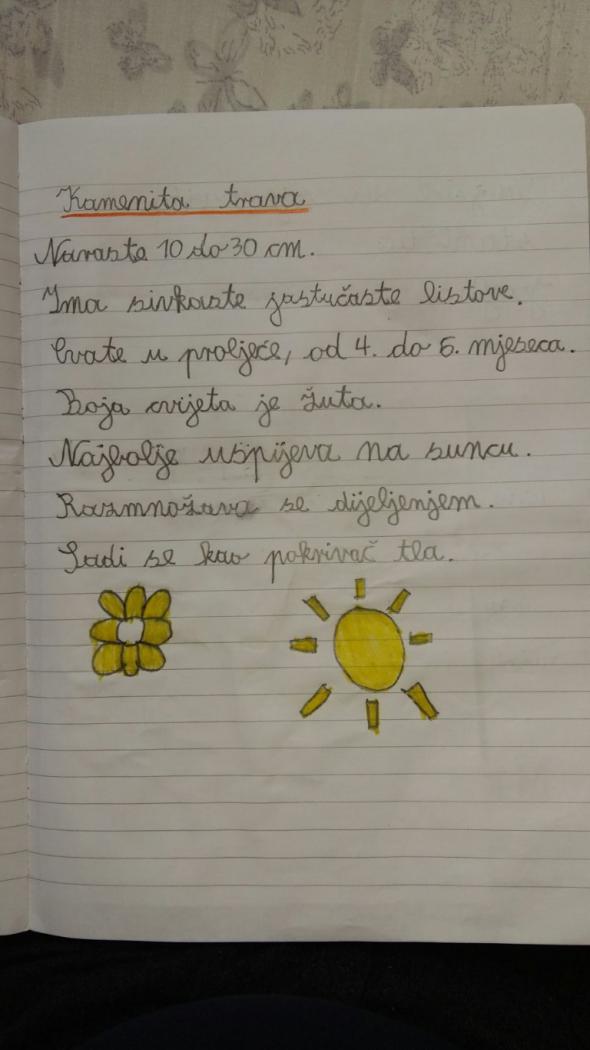 Kamenita trava
Naraste 10 do 30 cm.
Ima sivkaste jastučaste listove.
Cvate u proljeće, od 4. do 6. mjeseca.
Boja cvijeta je žuta.
Najbolje uspijeva na suncu.
Razmnožava se dijeljenjem.
Sadi se kao pokrivač tla.